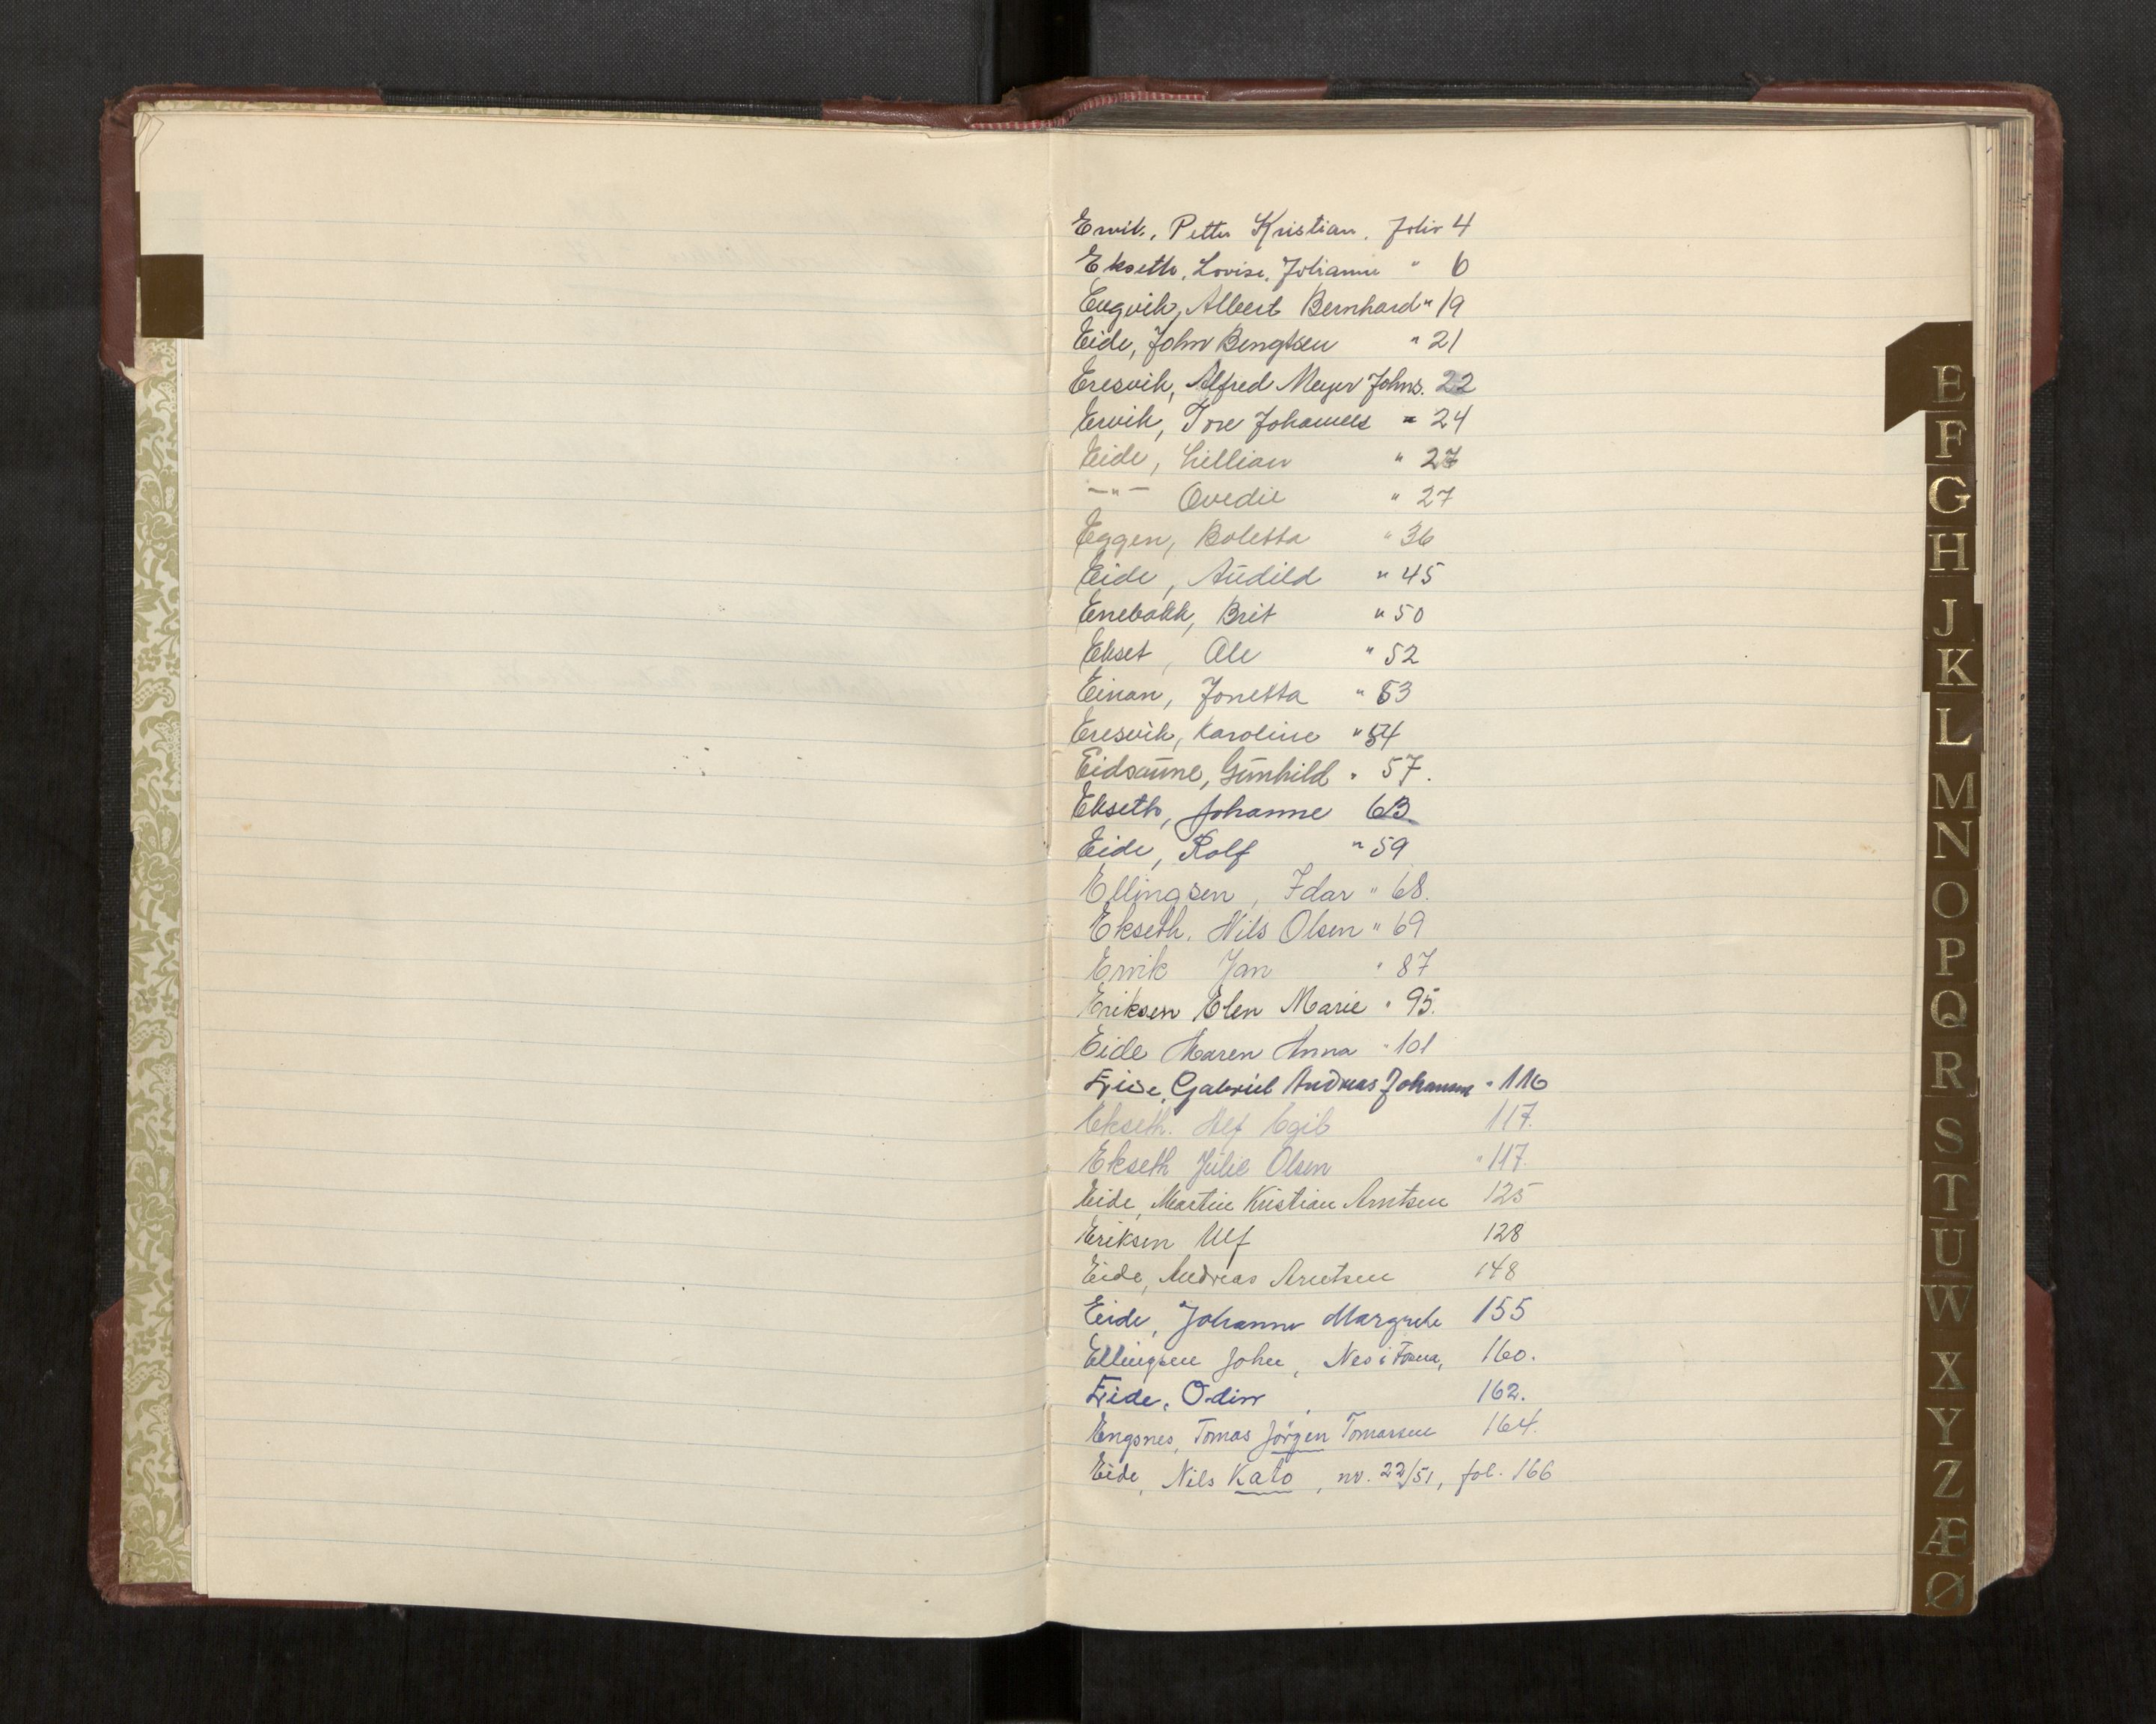 Ervik, Petter Kristian. Folio 4
Ekseth, Lovise Johanne " 6
Engvik, Albert Bernhard " 19
Eide, John Bengtsen " 21
Eresvik, Alfred Meyer Johns. 22
Ervik, Tore Johannes " 24
Eide, Lillian " 27
—"— Ovedie " 27
Eggen, Boletta " 36
Eide, Audild " 45
Enebakk, Brit " 50
Ekset, Ole " 52
Einan, Jonetta " 53
Eresvik, Karoline " 54
Eidsaune, Gunhild " 57.
Ekseth, Johanne 63
Eide, Rolf " 59
Ellingsen, Idar " 68.
Ekseth, Nils Olsen " 69
Ervik Jan " 87
Eriksen Elen Marie " 95.
Eide Maren Anna " 101
Eide, Gabriel Andreas Johansen " 116
Ekseth. Alf Egil 117.
Ekseth Julie Olsen " 117
Eide, Martin Kristian Arntsen 125
Eriksen Ulf 128
Eide, Andreas Arntsen 148
Eide, Johanne Margrete 155
Ellingsen John, Nes i Fosna, 160.
Eide, Odin 162.
Engsnes, Tomas Jörgen Tomassen 164.
Eide, Nils Kato, nr. 22/51, fol. 166
E
F
G
H
J
K
L
M
N
O
P
Q
R
S
T
U
W
X
Y
Z
Æ
Ø